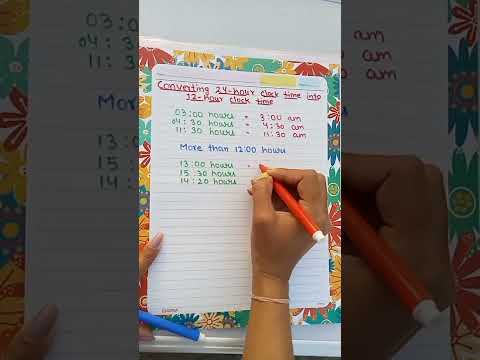 Converting 24-hour clock time into
12-hour clock time
03:00 hours = 3:00 am
04:30 hours = 4:30 am
11:30 hours = 11:30 am
More than 12:00 hours
13:00 hours =
15:30 hours
14:20 hours